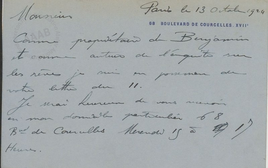 Paris le 13 Octobre 1924
68 BOULEVARD DE COURCELLES. XVIIe
Monsieur
Comme propriétaire de Benjamin
et comme auteur de l'enquête sur
les rêves je suis en possession de
votre lettre du 11.
Je serai heureux de vous recevoir
en mon domicile particulier 68
Bd de Courcelles Mercredi 15 à 17
Heures.